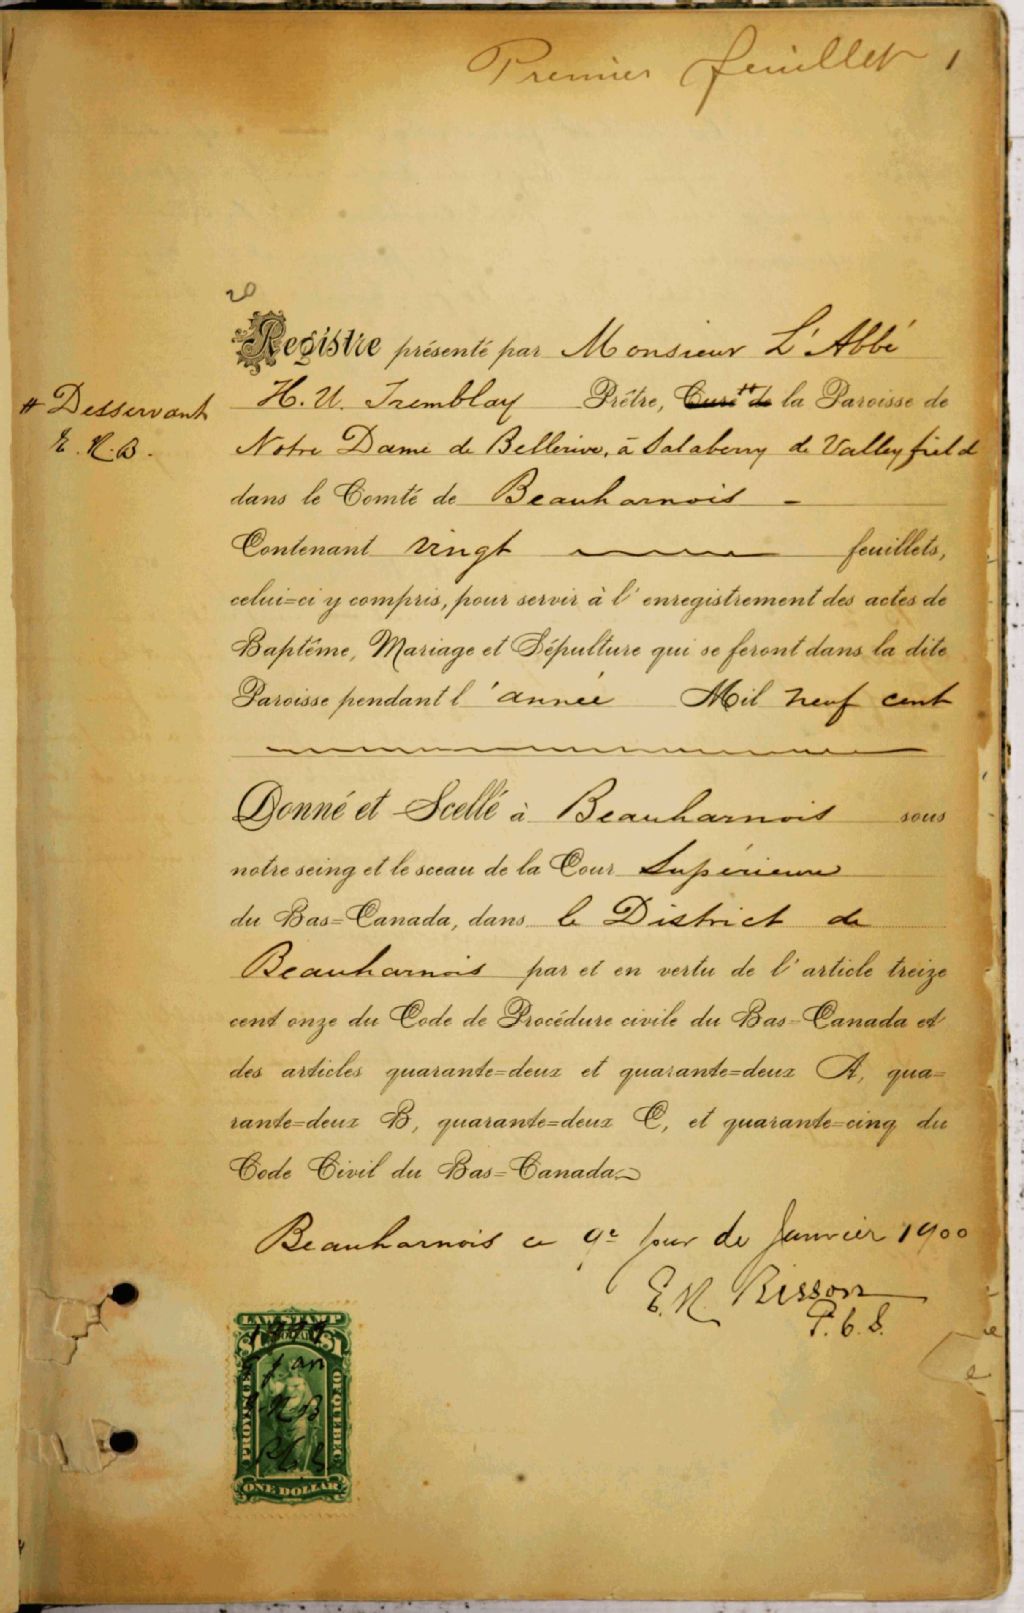 Premier feuillet 1
20
Registre présenté par Monsieur L'Abbé
# Desservant
E. N. B.
H. U. Tremblay Prêtre, Curé # de la Paroisse de
Notre Dame de Bellerive, à Salaberry de Valleyfield
dans le Comté de Beauharnois -
Contenant vingt feuillets,
celui=ci y compris, pour servir à l'enregistrement des actes de
Baptême, Mariage et Sépulture qui se feront dans la dite
Paroisse pendant l'année Mil neuf cent
Donné et Scellé à Beauharnois sous
notre seing et le sceau de la Cour Supérieure
du Bas=Canada, dans le District de
Beauharnois par et en vertu de l'article treize
cent onze du Code de Procédure civile du Bas=Canada et
des articles quarante=deux et quarante=deux A, qua=
rante=deux B, quarante=deux C, et quarante=cinq du
Code Civil du Bas=Canada
Beauharnois ce 9e jour de Janvier 1900
E. N. Bisson
P. C. S.
LAW STAMP
$1 $1
Jan
N B
PROVINCE OF QUEBEC
P C S
ONE DOLLAR